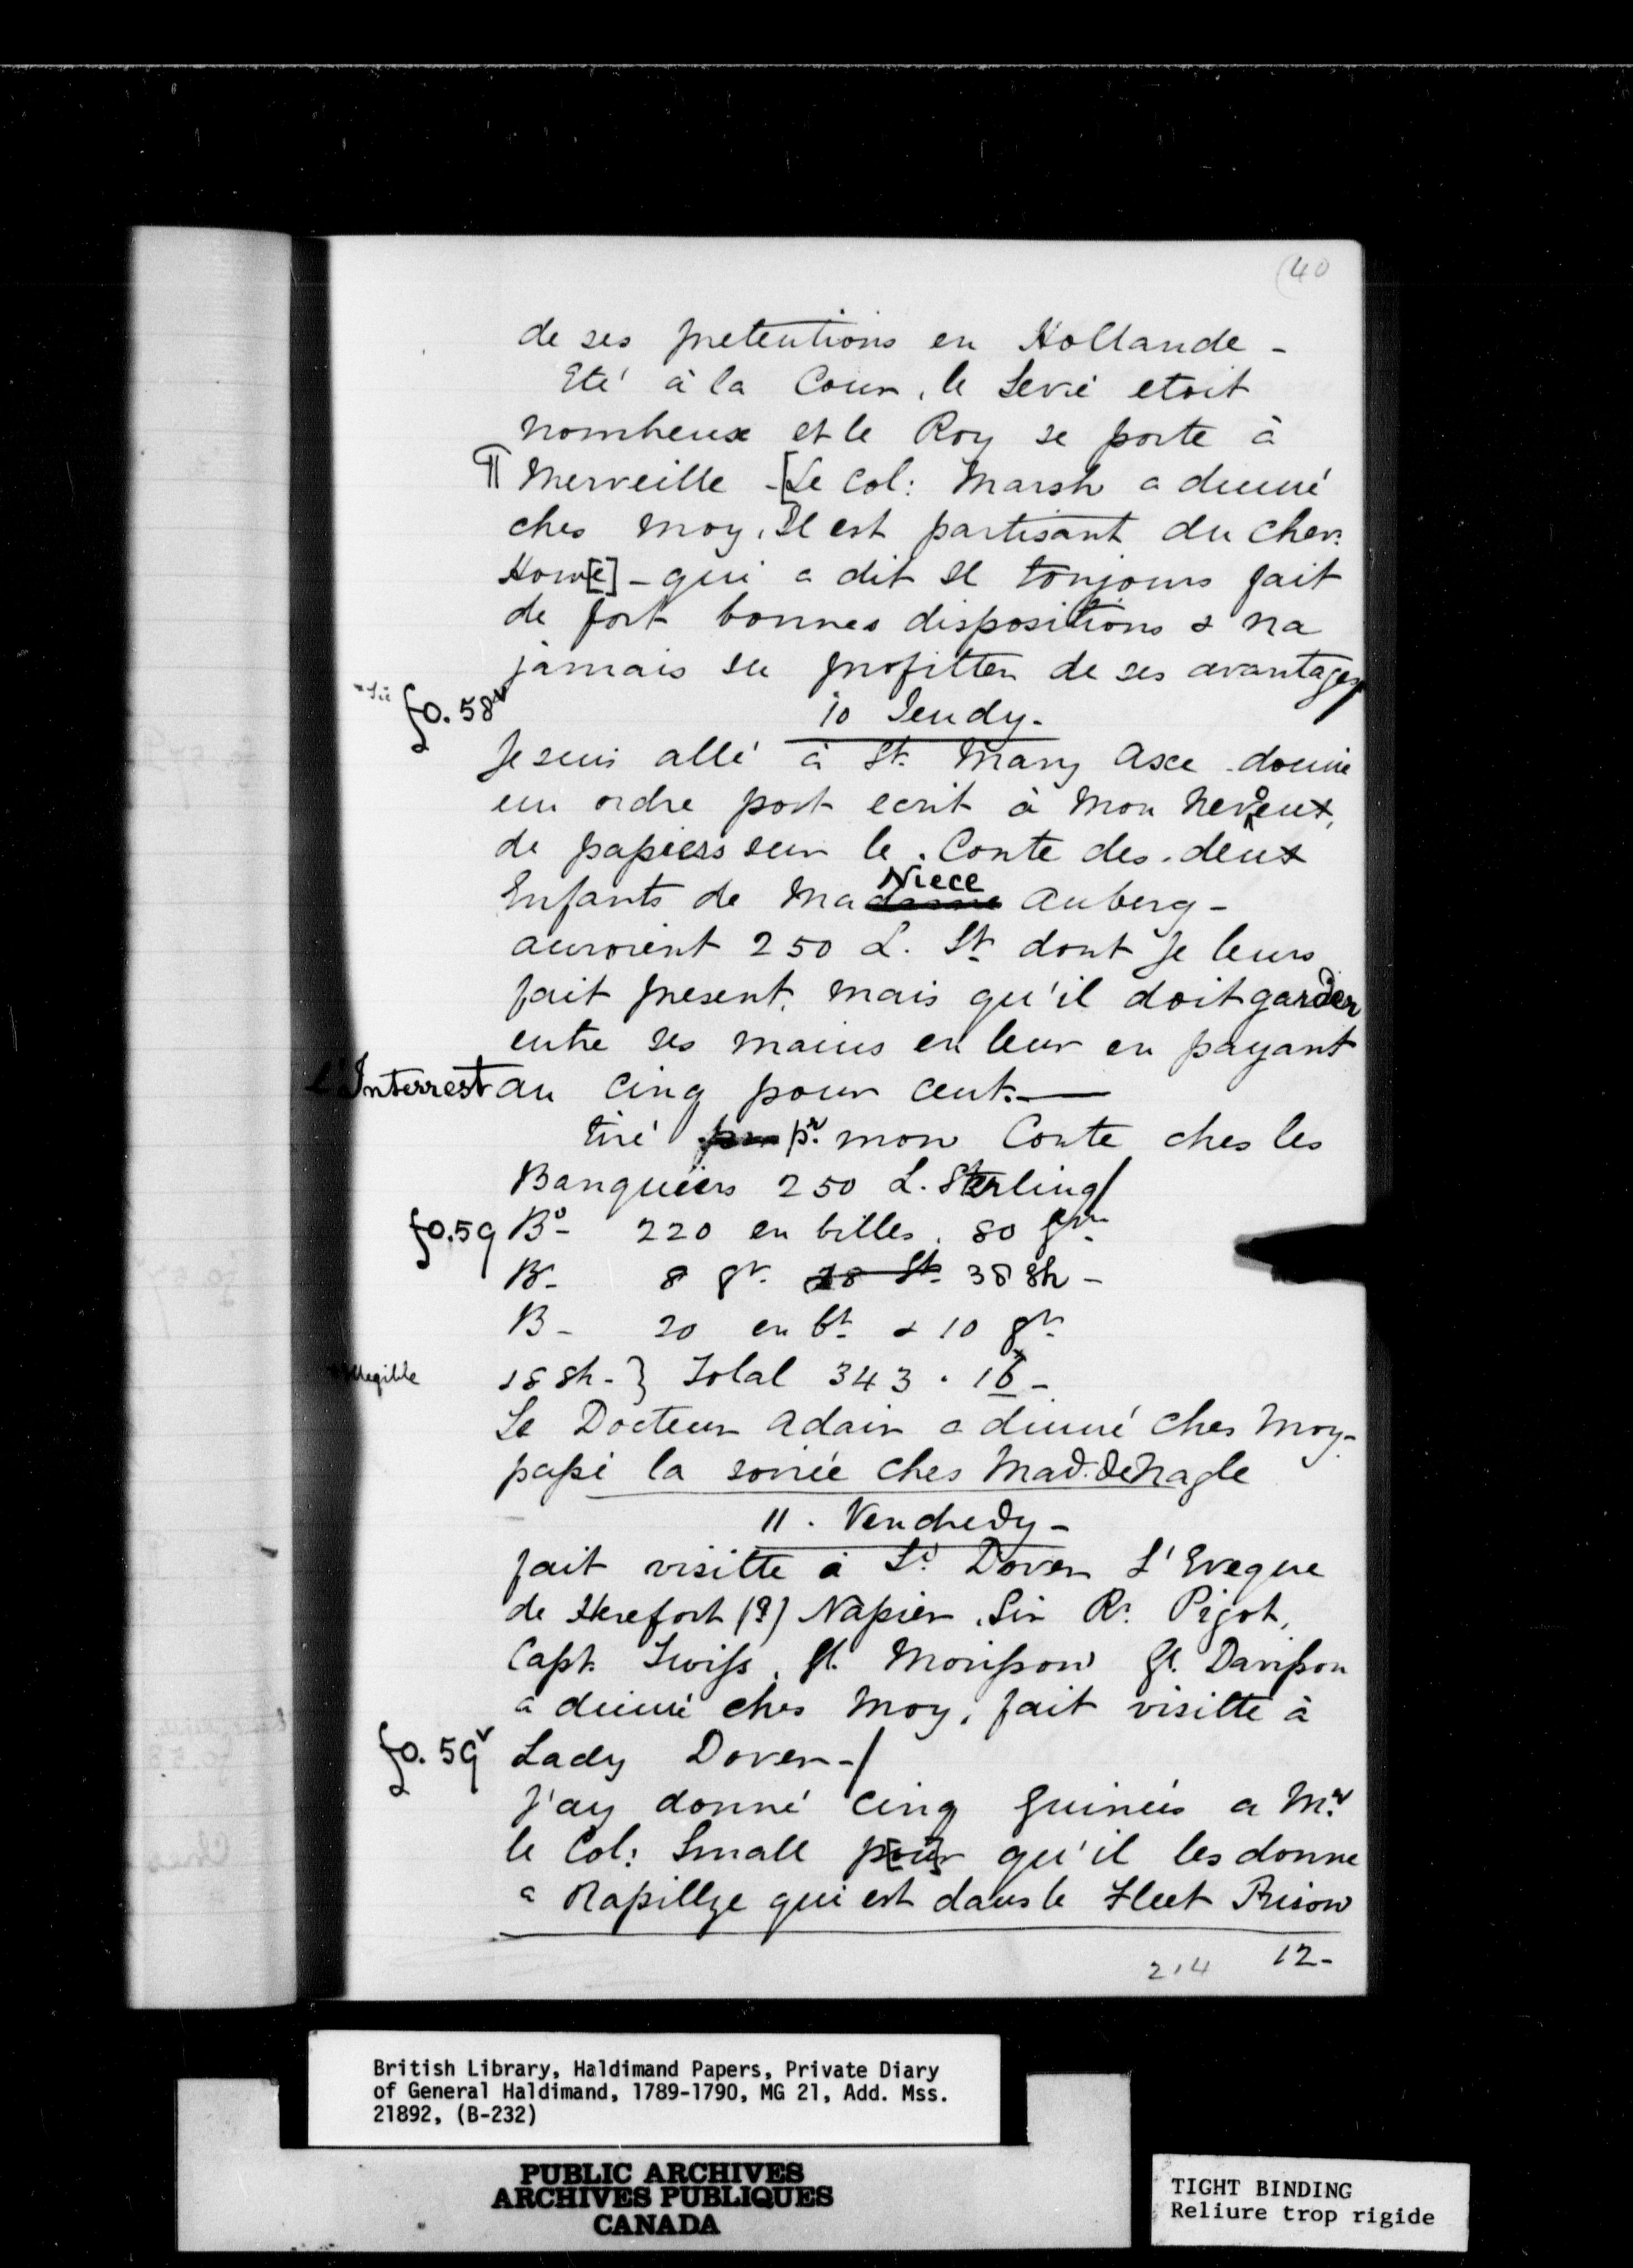 (40
de ses pretentions en Hollande -
Eté à la Cour, le Levé etoit
nombreux et le Roy se porte à
Merveille - [Le Col: Marsh a dinné
ches moy, Il est partisant du Chev:
Howe[] - qui a dit Il toujours fait
de fort bonnes dispositions & na
jamais su profitter de ses avantages
* Sic fo. 58v
10 Jeudy -
Je suis allé à St. Mary Axe donné
un ordre post ecrit à mon neveux,
de papiers sur le Conte des deux
Enfants de Ma Niece Auberg -
auroient 250 L. St. dont Je leurs
fait present, mais qu'il doit garder
entre ses mains en leur en payant
L'Interrest au cinq pour cent. —
tiré pr. mon Conte ches les
Banquiers 250 L. Sterling/
fo. 59 Bo - 220 en billes, 80 gn.
B - 8 gs. 38 Sh -
B - 20 en bt. & 10 gs.
* Illegible 18 sh - } Total 343 . 16* -
Le Docteur Adair a dinné ches Moy -
passé la soirée ches Mad. de Nagle
11 . Vendredy -
fait visitte à Ld. Dover L'Eveque
de Herefort (?) Napier, Sir R. Pigot,
Capt. Twiss, Gl. Morisson Gl. Davisson
a dinné ches Moy, fait visitte à
fo. 59v Lady Dover - /
J'ay donné cinq guineés a Mr.
le Col: Small p[ou]r qu'il les donne
a Rapillye qui est dans le Fleet Prison
12 -
214
British Library, Haldimand Papers, Private Diary
of General Haldimand, 1789-1790, MG 21, Add. Mss.
21892, (B-232)
PUBLIC ARCHIVES
ARCHIVES PUBLIQUES
CANADA
TIGHT BINDING
Reliure trop rigide